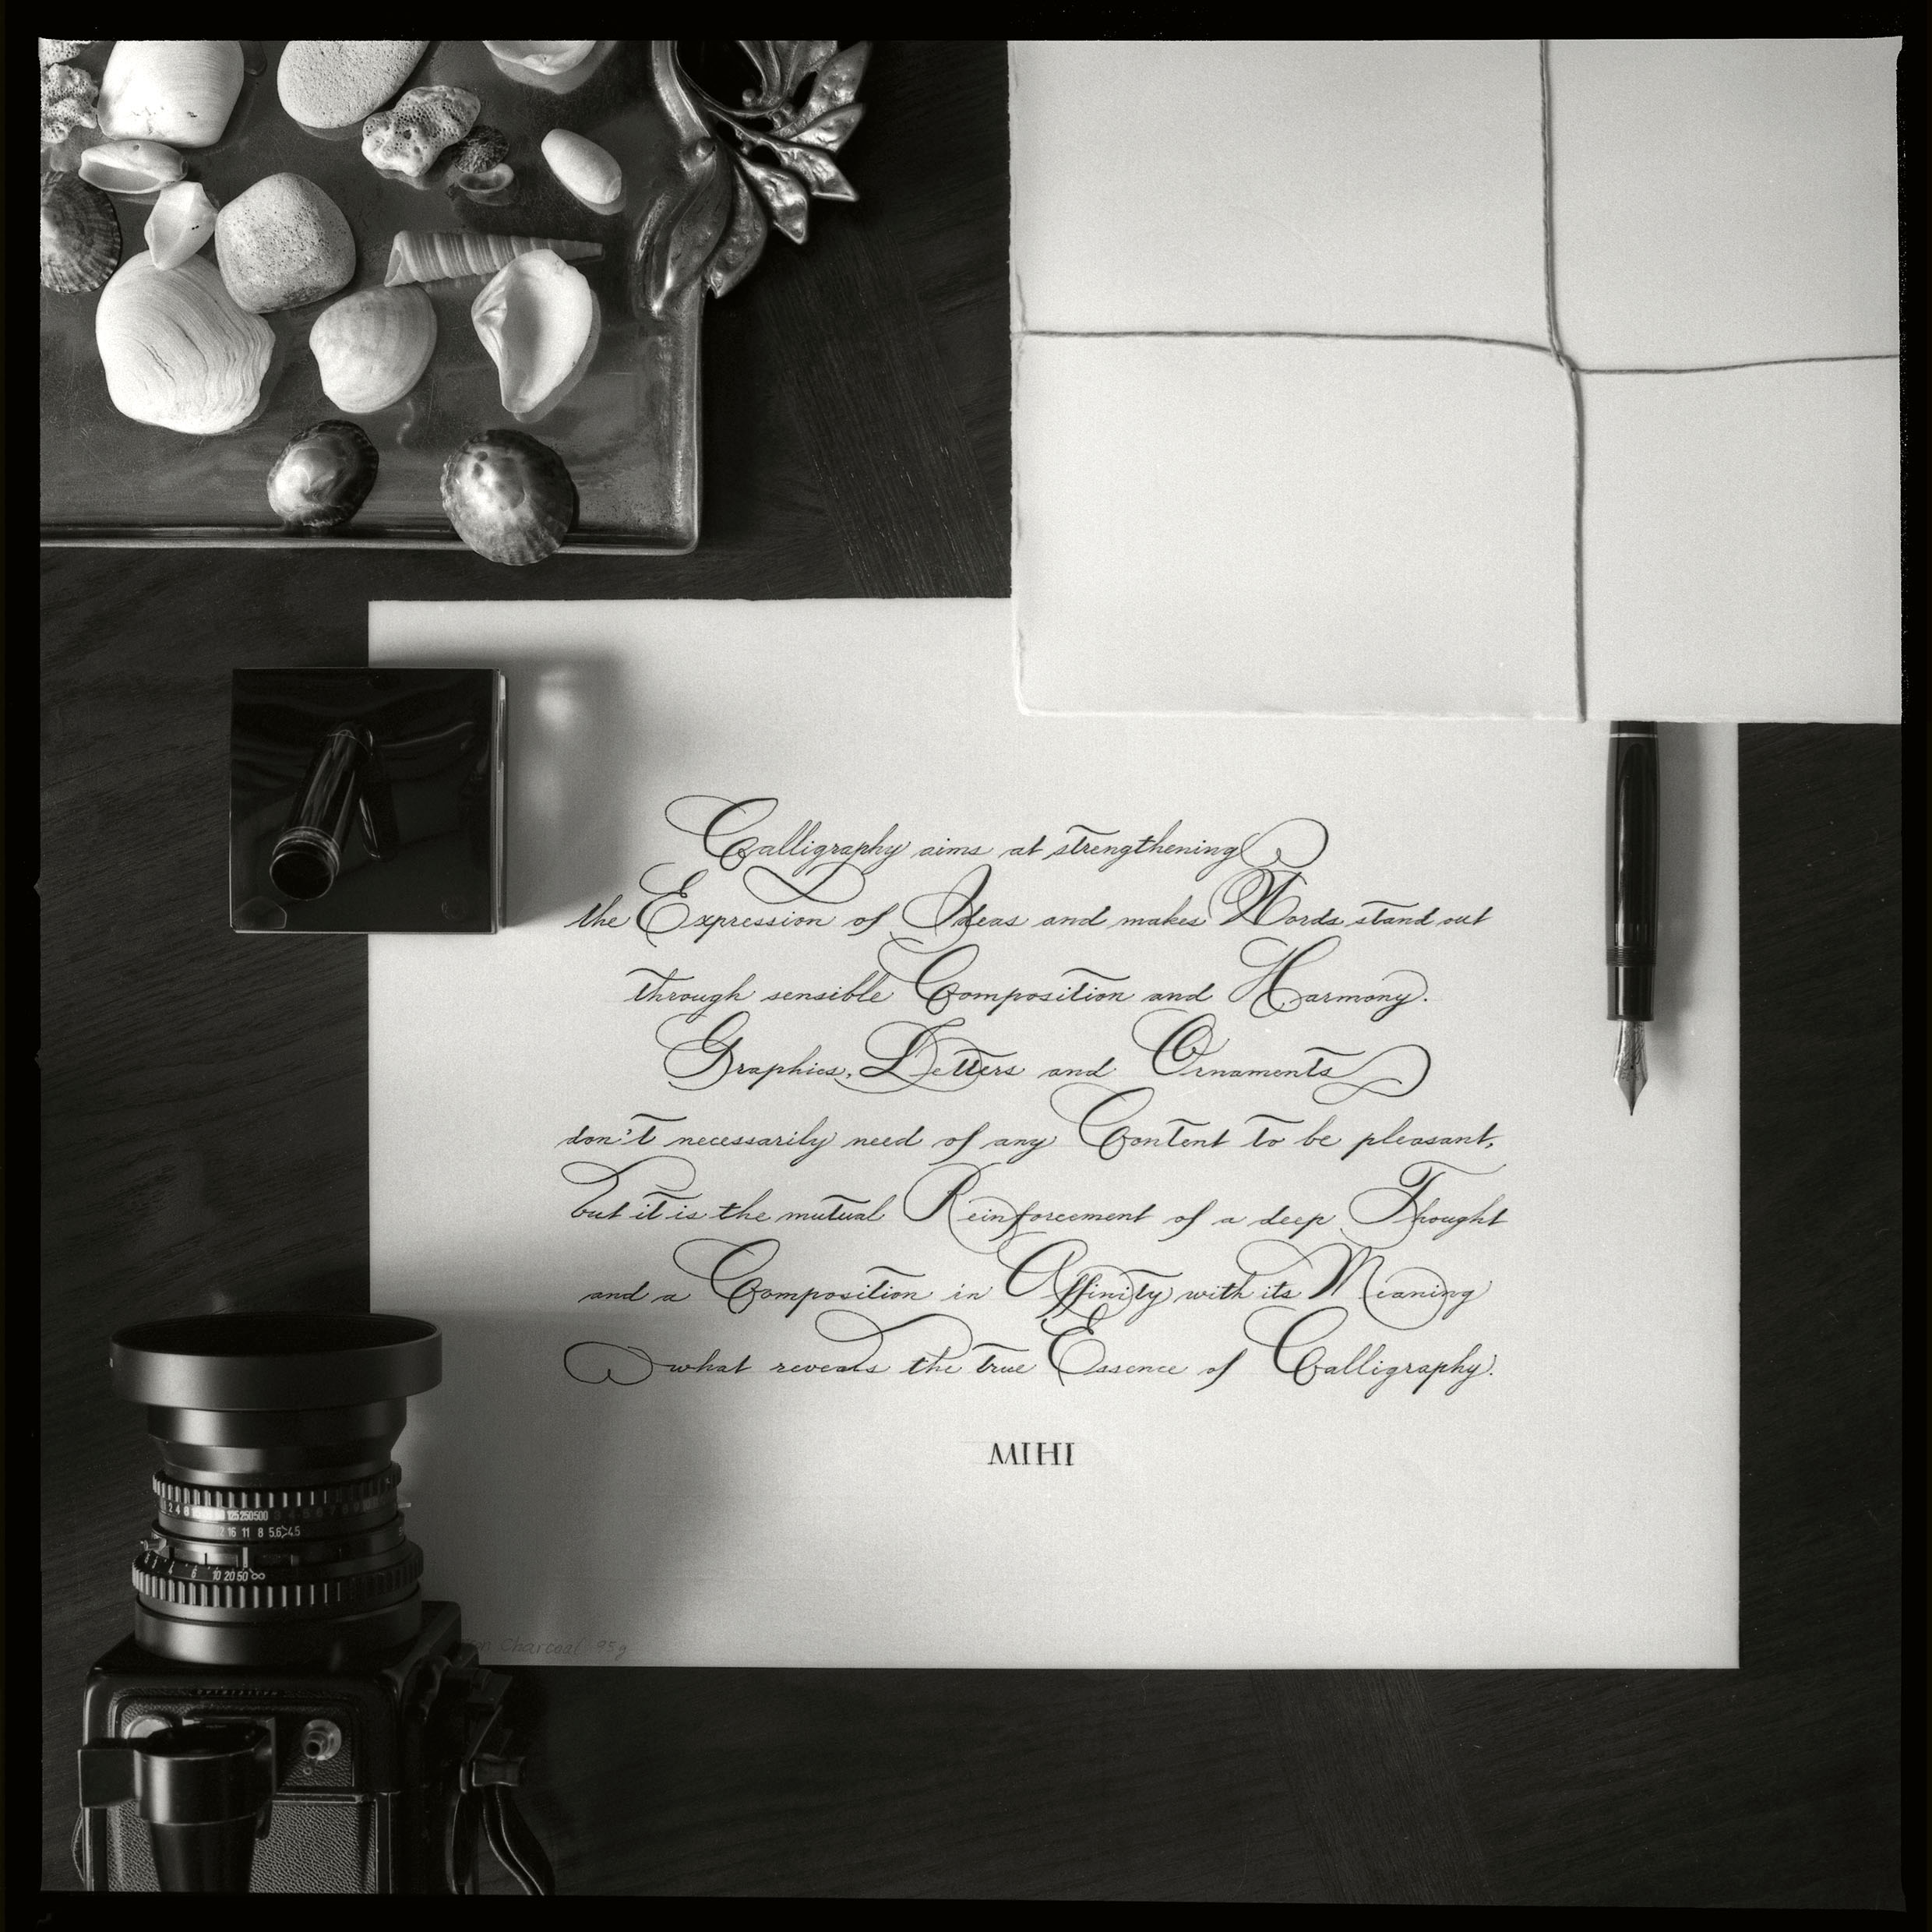 Calligraphy aims at strengthening
the Expression of Ideas and makes Words stand out
through sensible Composition and Harmony.
Graphics, Letters and Ornaments
don't necessarily need of any Content to be pleasant,
but it is the mutual Reinforcement of a deep Thought
and a Composition in Affinity with its Meaning
what reveals the true Essence of Calligraphy.
MIHI
2 4 8 125 250 500
16 11 8 5.6 4.5
6 10 20 50 ∞
Charcoal 95g